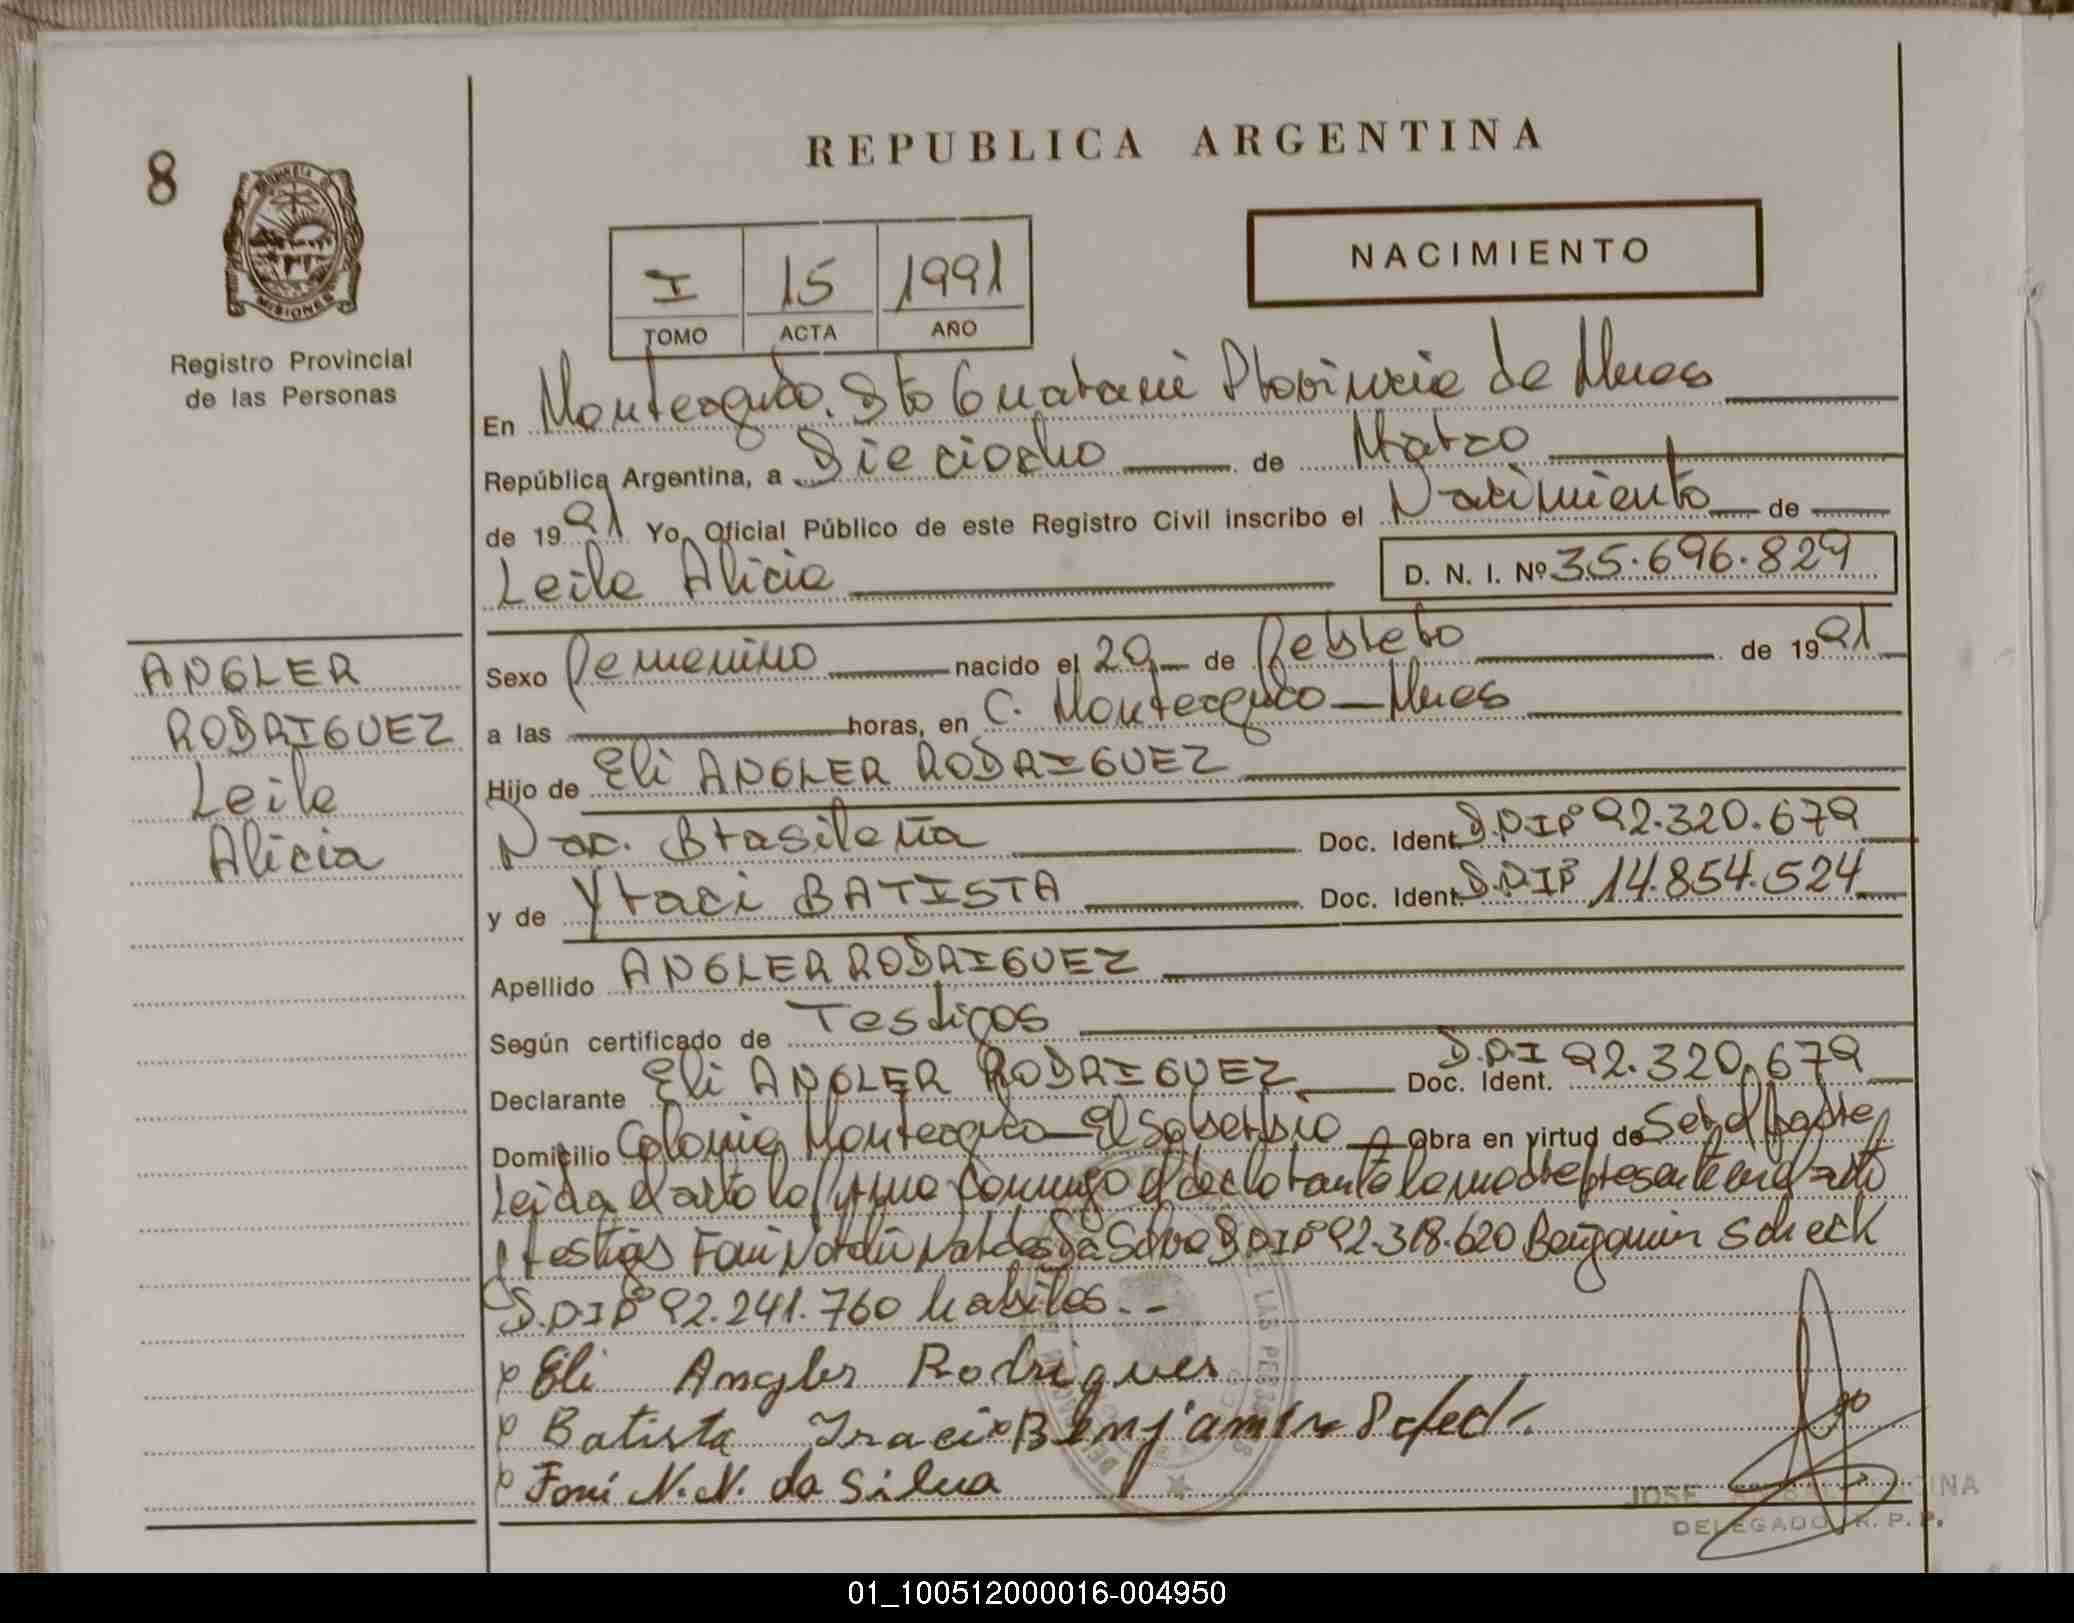 REPUBLICA ARGENTINA
8
PROVINCIA DE
MISIONES
Registro Provincial
de las Personas
I 15 1991
TOMO ACTA AÑO
NACIMIENTO
En Monteagudo. Gto Guarani Provincia de Mnes
República Argentina, a Dieciocho de Marzo
de 1991 Yo, Oficial Público de este Registro Civil inscribo el Nacimiento de
Leila Alicia D. N. I. Nº 35.696.829
ANGLER
RODRIGUEZ
Leila
Alicia
Sexo Femenino nacido el 20 de Febrero de 1991
a las horas, en C. Monteagudo - Mnes
Hijo de Eli ANGLER RODRIGUEZ
Nac. Brasileña Doc. Ident. D.N.I Nº 92.320.679
y de Yraci BATISTA Doc. Ident. D.N.I Nº 14.854.524
Apellido ANGLER RODRIGUEZ
Según certificado de Testigos
Declarante Eli ANGLER RODRIGUEZ Doc. Ident. D.N.I 92.320.679
Domicilio Colonia Monteagudo - El Soberbio Obra en virtud de Ser el padre
Leida el acta la firma conmigo el declarante la madre presente en el acto
testigos Da Silva D.N.I Nº 92.318.620 Benjamin Scheck
D.N.I Nº 92.241.760 habiles.-
Eli Angler Rodrigues
Batista Iraci Benjamin
N.N. da Silva
JOSE
DELEGADO R. P. P.
01_100512000016-004950